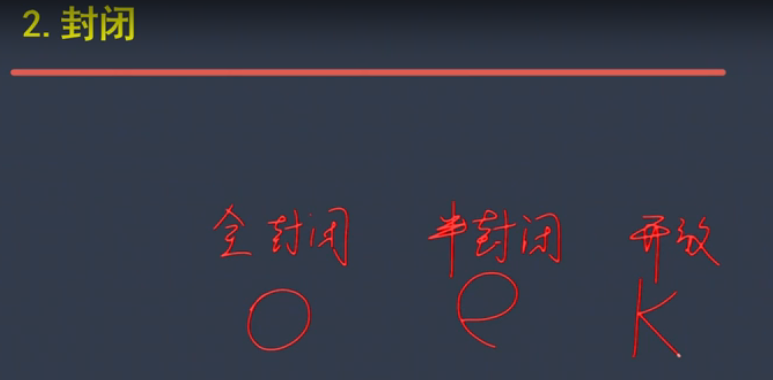 2. 封闭
全封闭 半封闭 开放
O e K